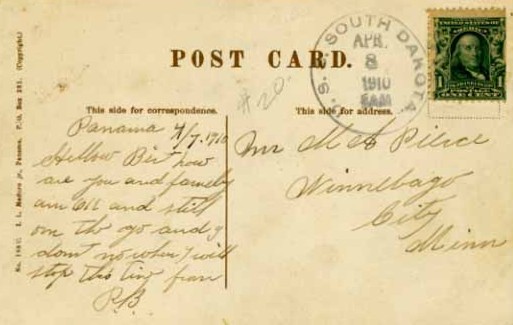 POST CARD.
This side for correspondence.
This side for address.
U.S.S. SOUTH DAKOTA.
APR.
8
1910
5AM
1
ONE CENT
$20.
No. 188C. I. L. Maduro jr., Panama. P.O. Box 281. (Copyright.)
Panama 4/7, 1910
Hellow Bert how
are you and famely
am OK and still
on the go and I
dont no when I will
stop this time from
R.B.
Mr M A Pierce
Winnebago
City
Minn